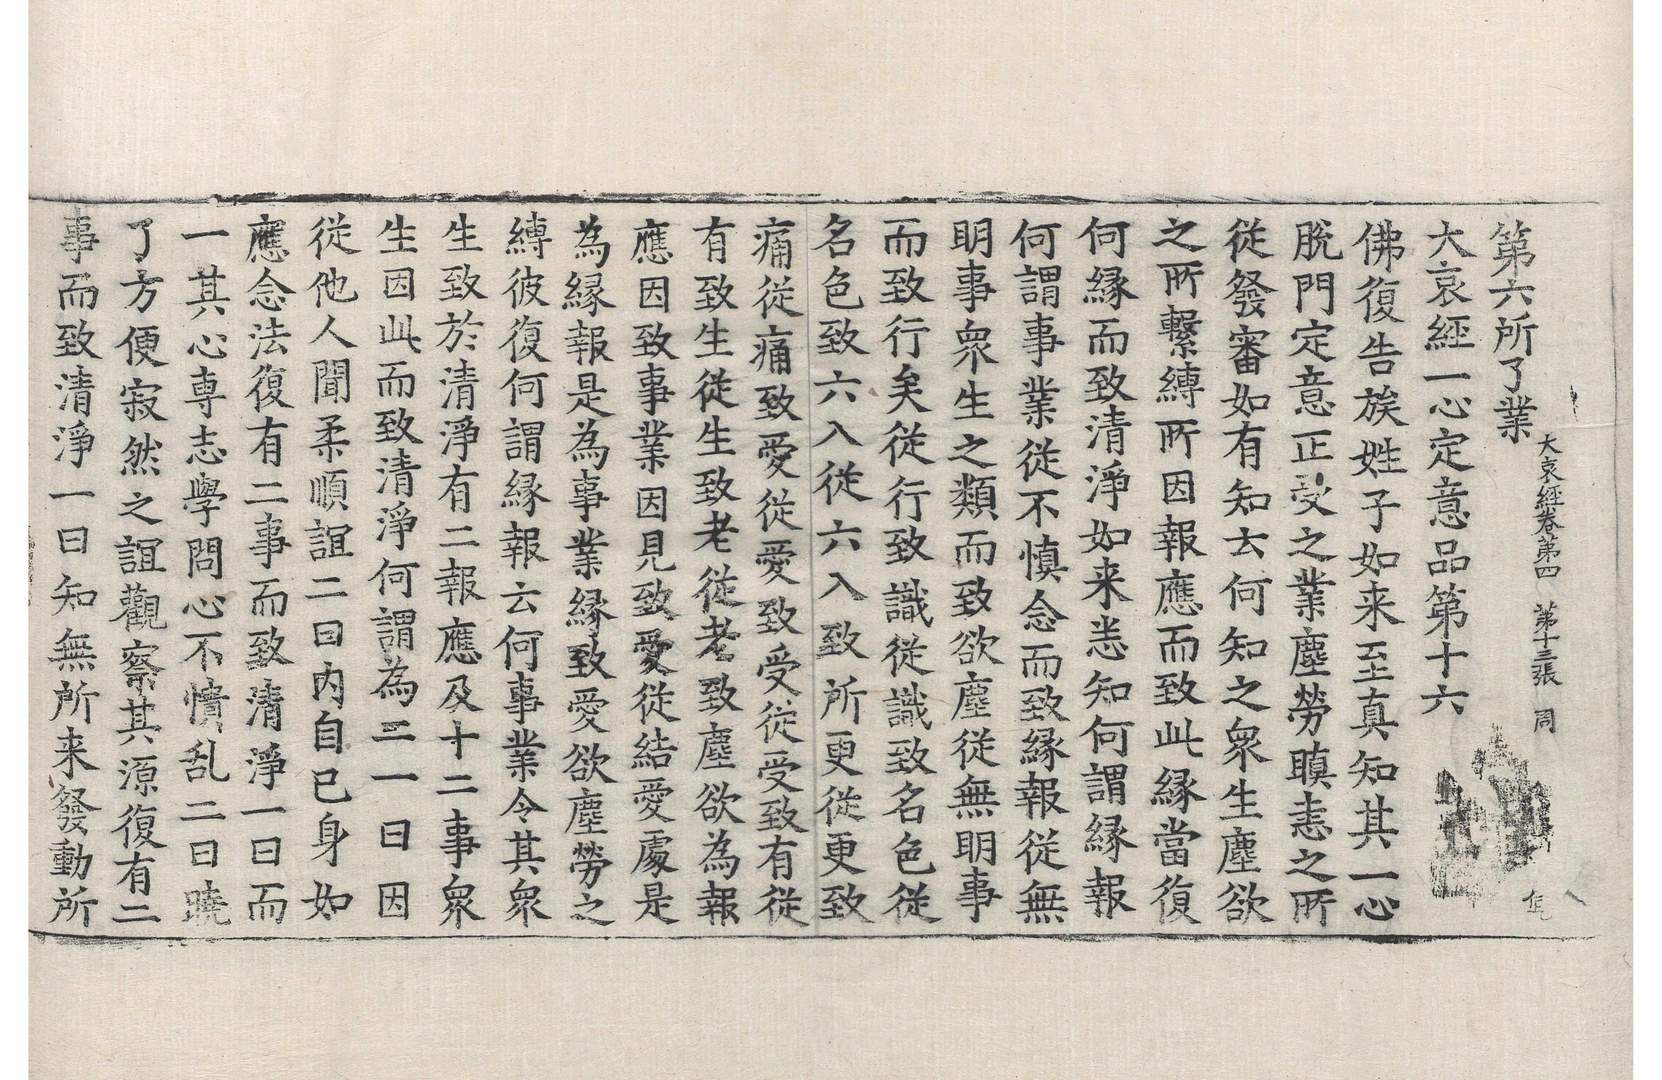 大哀經卷第四　第十三張　周
第六所了業
大哀經一心定意品第十六
佛復告族姓子如来至真知其一心
脫門定意正受之業塵勞瞋恚之所
從發審如有知去何知之衆生塵欲
之所繫縛所因報應而致此緣當復
何緣而致清淨如来悉知何謂緣報
何謂事業從不慎念而致緣報從無
明事衆生之類而致欲塵從無明事
而致行矣從行致識從識致名色從
名色致六入從六入致所更從更致
痛從痛致愛從愛致受從受致有從
有致生從生致老從老致塵欲為報
應因致事業因見致愛從結愛處是
為緣報是為事業緣致愛欲塵勞之
縛彼復何謂緣報云何事業令其衆
生致於清淨有二報應及十二事衆
生因此而致清淨何謂為二一曰因
從他人聞柔順誼二曰內自已身如
應念法復有二事而致清淨一曰而
一其心専志學問心不憒乱二曰曉
了方便寂然之誼觀察其源復有二
事而致清淨一曰知無所来發動所